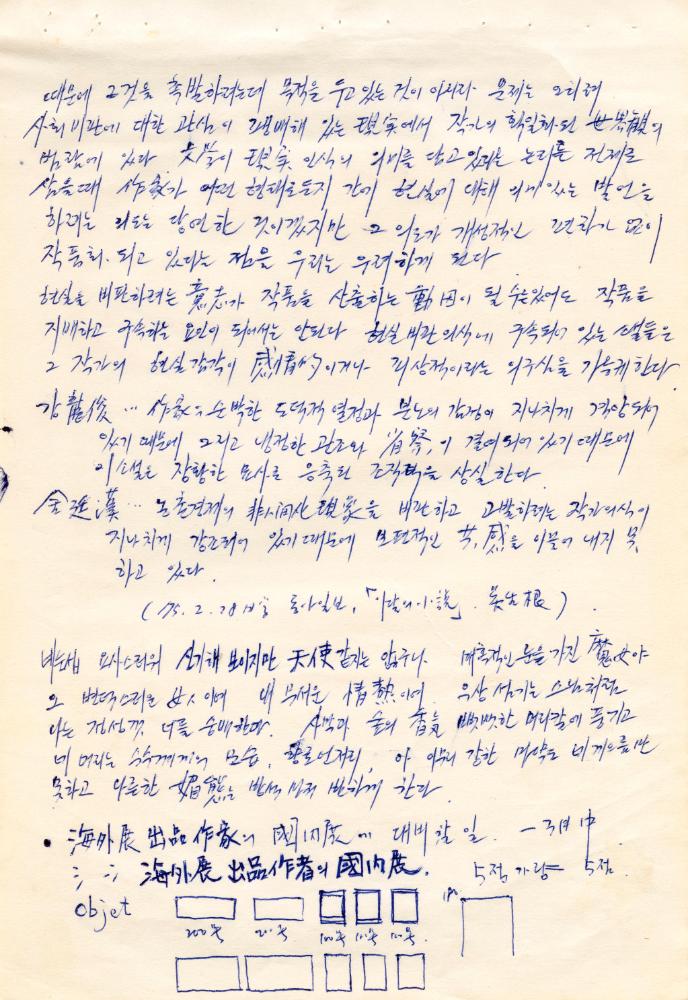 때문에 그것을 촉발하려는데 목적을 두고 있는 것이 아니라 문제는 오히려
사회비판에 대한 관심이 팽배해 있는 現実에서 작가의 획일화된 世界観의
범람에 있다 文學이 現実 인식의 의미를 담고 있다는 논리를 전제로
삼을때 作家가 어떤 형태로든지 간에 현실에 대해 의미있는 발언을
하려는 의도는 당연한 것이겠지만 그 의도가 개성적인 변화가 없이
작품화 되고 있다는 점을 우리는 우려하게 된다
현실을 비판하려는 意志가 작품을 산출하는 動因이 될 수는 있어도 작품을
지배하고 구속하는 요인이 되어서는 안된다 현실비판의식에 구속되어 있는 소설들은
그 작가의 현실감각이 感情的이거나 피상적이라는 의구심을 가웃케한다
龍俊 … 作家의 순박한 도덕적 열정과 분노의 감정이 지나치게 격앙되어
있기 때문에 그리고 냉정한 관조와 省察이 결여되어 있기 때문에
이 소설은 장황한 묘사로 응축된 조직력을 상실한다
金廷漢 … 농촌경제의 非人间化現象을 비판하고 고발하려는 작가의식이
지나치게 강조되어 있기 때문에 보편적인 共感을 이끌어 내지 못
하고 있다.
(75. 2. 28 동아일보, 「이달의 小説」 吳生根)
비록 요사스러워 신기해 보이지만 天使같지는 않구나 매혹적인 눈을 가진 魔女야
오 변덕스러운 女人이여 내 무서운 情熱이여 우상 섬기는 스님처럼
나는 정성껏 너를 숭배한다. 사막과 숲의 香氣 뻣뻣한 머리칼에 풍기고
네 머리는 수수께끼의 모습, 향로 언저리 아 아무리 강한 미약도 네 게으름만
못하고 나른한 媚態는 반하게 한다
• 海外展 出品作家의 國內展에 대비할 일. — 3月中
〃 〃 海外展 出品作者의 國内展. 5점 가량 — 5점.
Objet
200号 20号 100号 10号